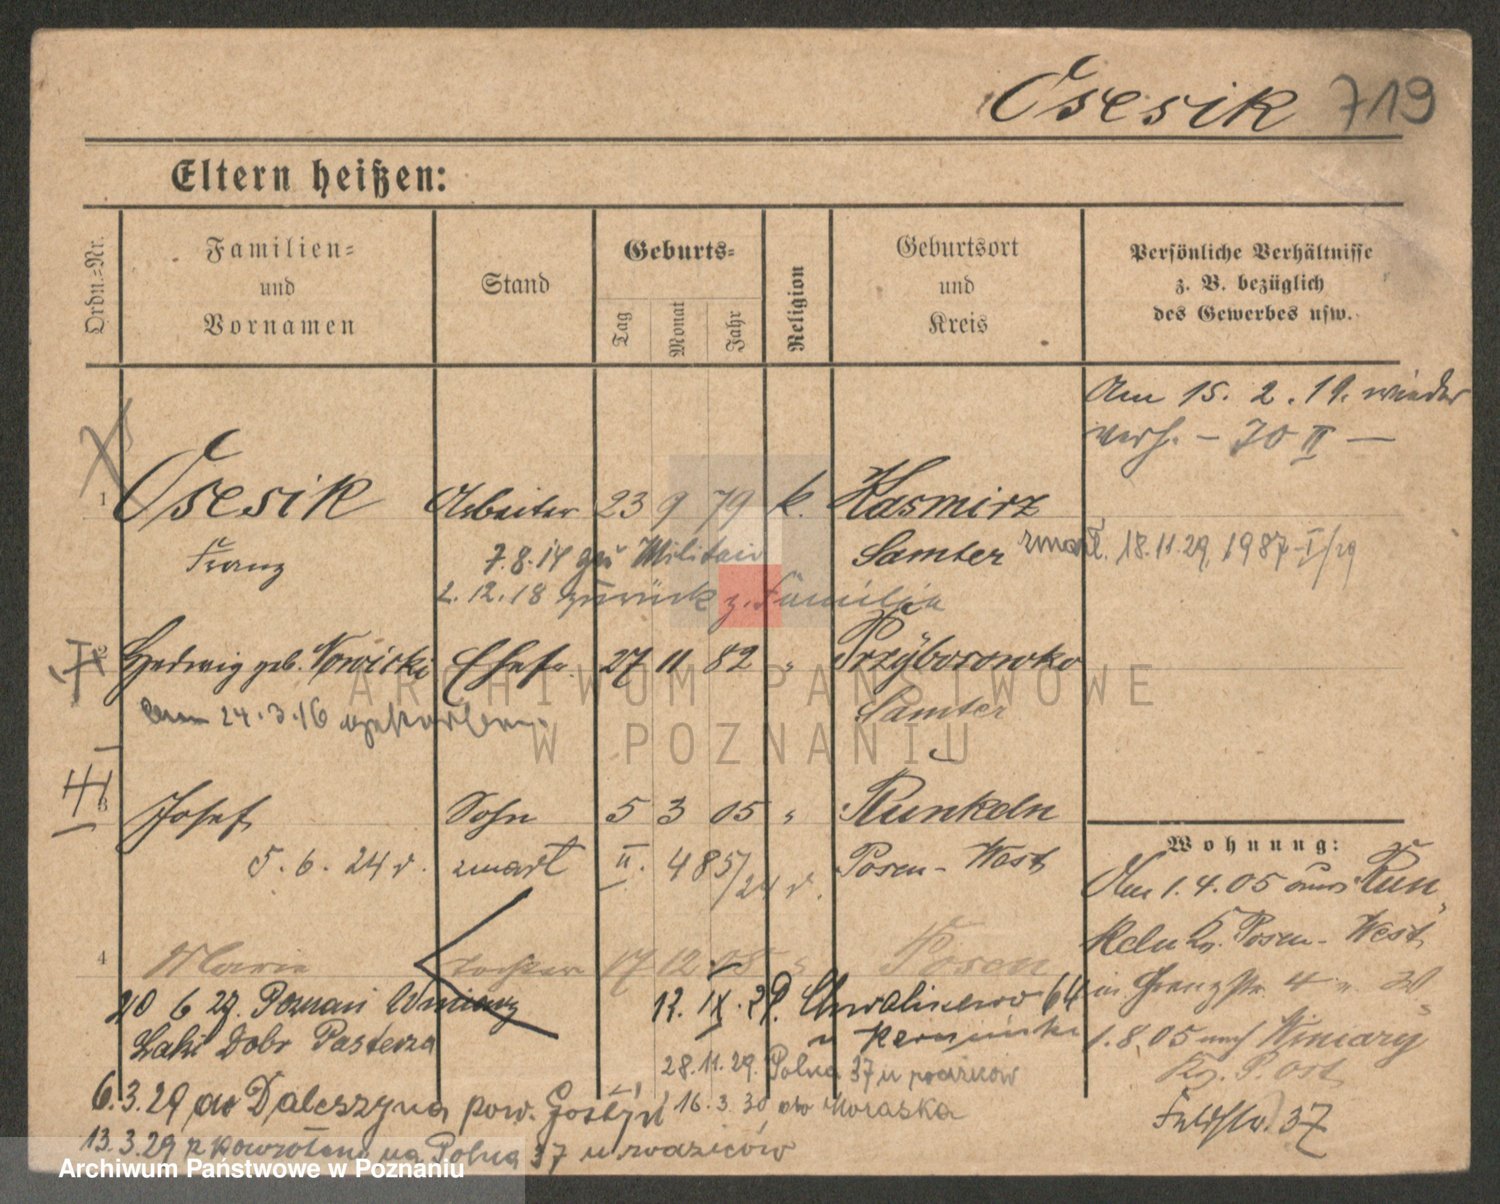 Osesik 719
Eltern heißen:
Ordn.=Nr.
Familien=
und
Vornamen
Stand
Geburts=
Tag
Monat
Jahr
Religion
Geburtsort
und
Kreis
Persönliche Verhältnisse
z. B. bezüglich
des Gewerbes usw.
Am 15. 2. 19. wieder
verh. – 70 II –
1 Osesik Arbeiter 23 9 79 k. Kasmirz
Franz 7.8.14 zu Militair Samter zmarł. 18.11.29, 1987-I/29
2.12.18 zurück z. Familie
2 Hedwig geb. Nowicki Ehefr. 27 11 82 " Przyborowko
Am 24.3.16 gestorben. Samter
3 Josef Sohn 5 3 05 " Runkeln
5. 6. 24 r. zmarł II. 485/24 r. Posen-West
Wohnung:
Am 1.4.05 aus Run-
keln Kr. Posen-West
in Grenzstr. 4
1.8.05 nach Winiary
Kr. P. Ost
Feldstr. 37
4 Marie Tochter 17 12 05 " Posen
20 6 29. Poznań Winiary 12. IX. 29. Chwaliszewo 64
Laki Dobr Pasterza u
28.11.29. Polna 37 u rodziców
6.3.29 do Daleszyna pow. Gostyń 16.3.30 do Moraska
13.3.29 z powrotem na Polna 37 u rodziców
ARCHIWUM PAŃSTWOWE
W POZNANIU
Archiwum Państwowe w Poznaniu